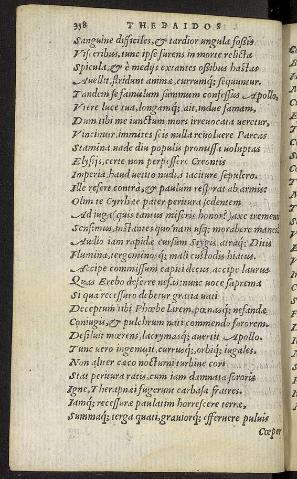 398 THEBAIDOS
Sanguine difficiles, & tardior ungula fossis
Visceribus, tunc ipse furens in morte relicta
Spicula, & è medijs extantes ossibus hastas
Avellit, stridunt animæ, currumq; sequuntur.
Tandem se famulum summum confessus Apollo,
Vtere luce tua, longamq; ait, indue famam,
Dum tibi me iunctum mors irrevocata veretur,
Vincimur, immites scis nulla revolvere Parcas
Stamina vade diu populis promissa voluptas
Elysijs, certe non perpessure Creontis
Imperia, haud vetito nudus iaciture sepulcro.
Ille refert contra, & paulum respirat ab armis
Olim te Cyrrhæe pater peritura sedentem
Ad iuga (quis tantus miseris honor?) axe trementi
Sensimus, instantes quonam usq; morabere manes?
Audio iam rapidæ cursum Stygis, atraq; Ditis
Flumina, tergeminosq; mali custodis hiatus.
Accipe commissum capiti decus, accipe laurus
Quas Erebo deferre nefas: nunc voce suprema
Si qua recessuro debetur gratia vati
Deceptum tibi Phœbe larem, pœnasq; nefandæ
Coniugis, & pulchrum nati commendo furorem.
Desiluit mœrens, lacrymasq; avertit Apollo.
Tunc vero ingemuit, currusq; orbiq; iugales.
Non aliter cæco nocturni turbine cori
Stat peritura ratis, cum iam damnata sororis
Igne, Therapnæi fugerunt carbasa fratres.
Iamq; recessuræ paulatim horrescere terræ,
Summaq; terga quati, graviorq; effervere pulvis
Cœper